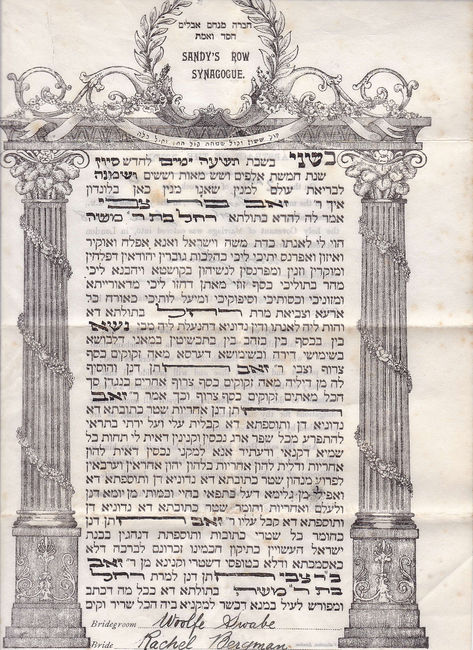 חברה מנחם אבלים
חסד ואמת
SANDY'S ROW
SYNAGOGUE.
קול ששון וקול שמחה קול חתן וקול כלה
בשני בשבת תשעה ימים לחדש סיון
שנת חמשת אלפים ושש מאות וששים ושמונה
לבריאת עולם למנין שאנו מנין כאן בלונדון
איך ר' זאב בר צבי
אמר לה להדא בתולתא רחל בת ר' משה
הוי לי לאנתו כדת משה וישראל ואנא אפלח ואוקיר
ואיזון ואפרנס יתיכי ליכי כהלכות גוברין יהודאין דפלחין
ומוקרין וזנין ומפרנסין לנשיהון בקושטא ויהבנא ליכי
מהר בתוליכי כסף זוזי מאתן דחזו ליכי מדאורייתא
ומזוניכי וכסותיכי וסיפוקיכי ומיעל לותיכי כאורח כל
ארעא וצביאת מרת רחל בתולתא דא
והות ליה לאנתו ודין נדוניא דהנעלת ליה מבי נשיא
בין בכסף בין בזהב בין בתכשיטין במאני דלבושא
בשימושי דירה ובשימושא דערסא מאה זקוקים כסף
צרוף וצבי ר' זאב חתן דנן והוסיף
לה מן דיליה מאה זקוקים כסף צרוף אחרים כנגדן סך
הכל מאתים זקוקים כסף צרוף וכך אמר ר' זאב
חתן דנן אחריות שטר כתובתא דא
נדוניא דן ותוספתא דא קבלית עלי ועל ירתי בתראי
להתפרע מכל שפר ארג נכסין וקנינין דאית לי תחות כל
שמיא דקנאי ודעתיד אנא למקני נכסין דאית להון
אחריות ודלית להון אחריות כלהון יהון אחראין וערבאין
לפרוע מנהון שטר כתובתא דא נדוניא דן ותוספתא דא
ואפי' מן גלימא דעל כתפאי בחיי ובמותי מן יומא דנן
ולעלם ואחריות וחומר שטר כתובתא דא נדוניא דן
ותוספתא דא קבל עליו ר' זאב חתן דנן
כחומר כל שטרי כתובות ותוספתות דנהגין בבנת
ישראל העשויין כתיקון חכמינו זכרונם לברכה דלא
כאסמכתא ודלא כטופסי דשטרי וקנינא מן ר' זאב
ב"ר צבי חתן דנן למרת רחל
בת ר' משה בתולתא דא בכל מה דכתוב
ומפורש לעול במנא דכשר למקניא ביה הכל שריר וקים
Bridegroom Woolfe Swabe
Bride Rachel Bergman.